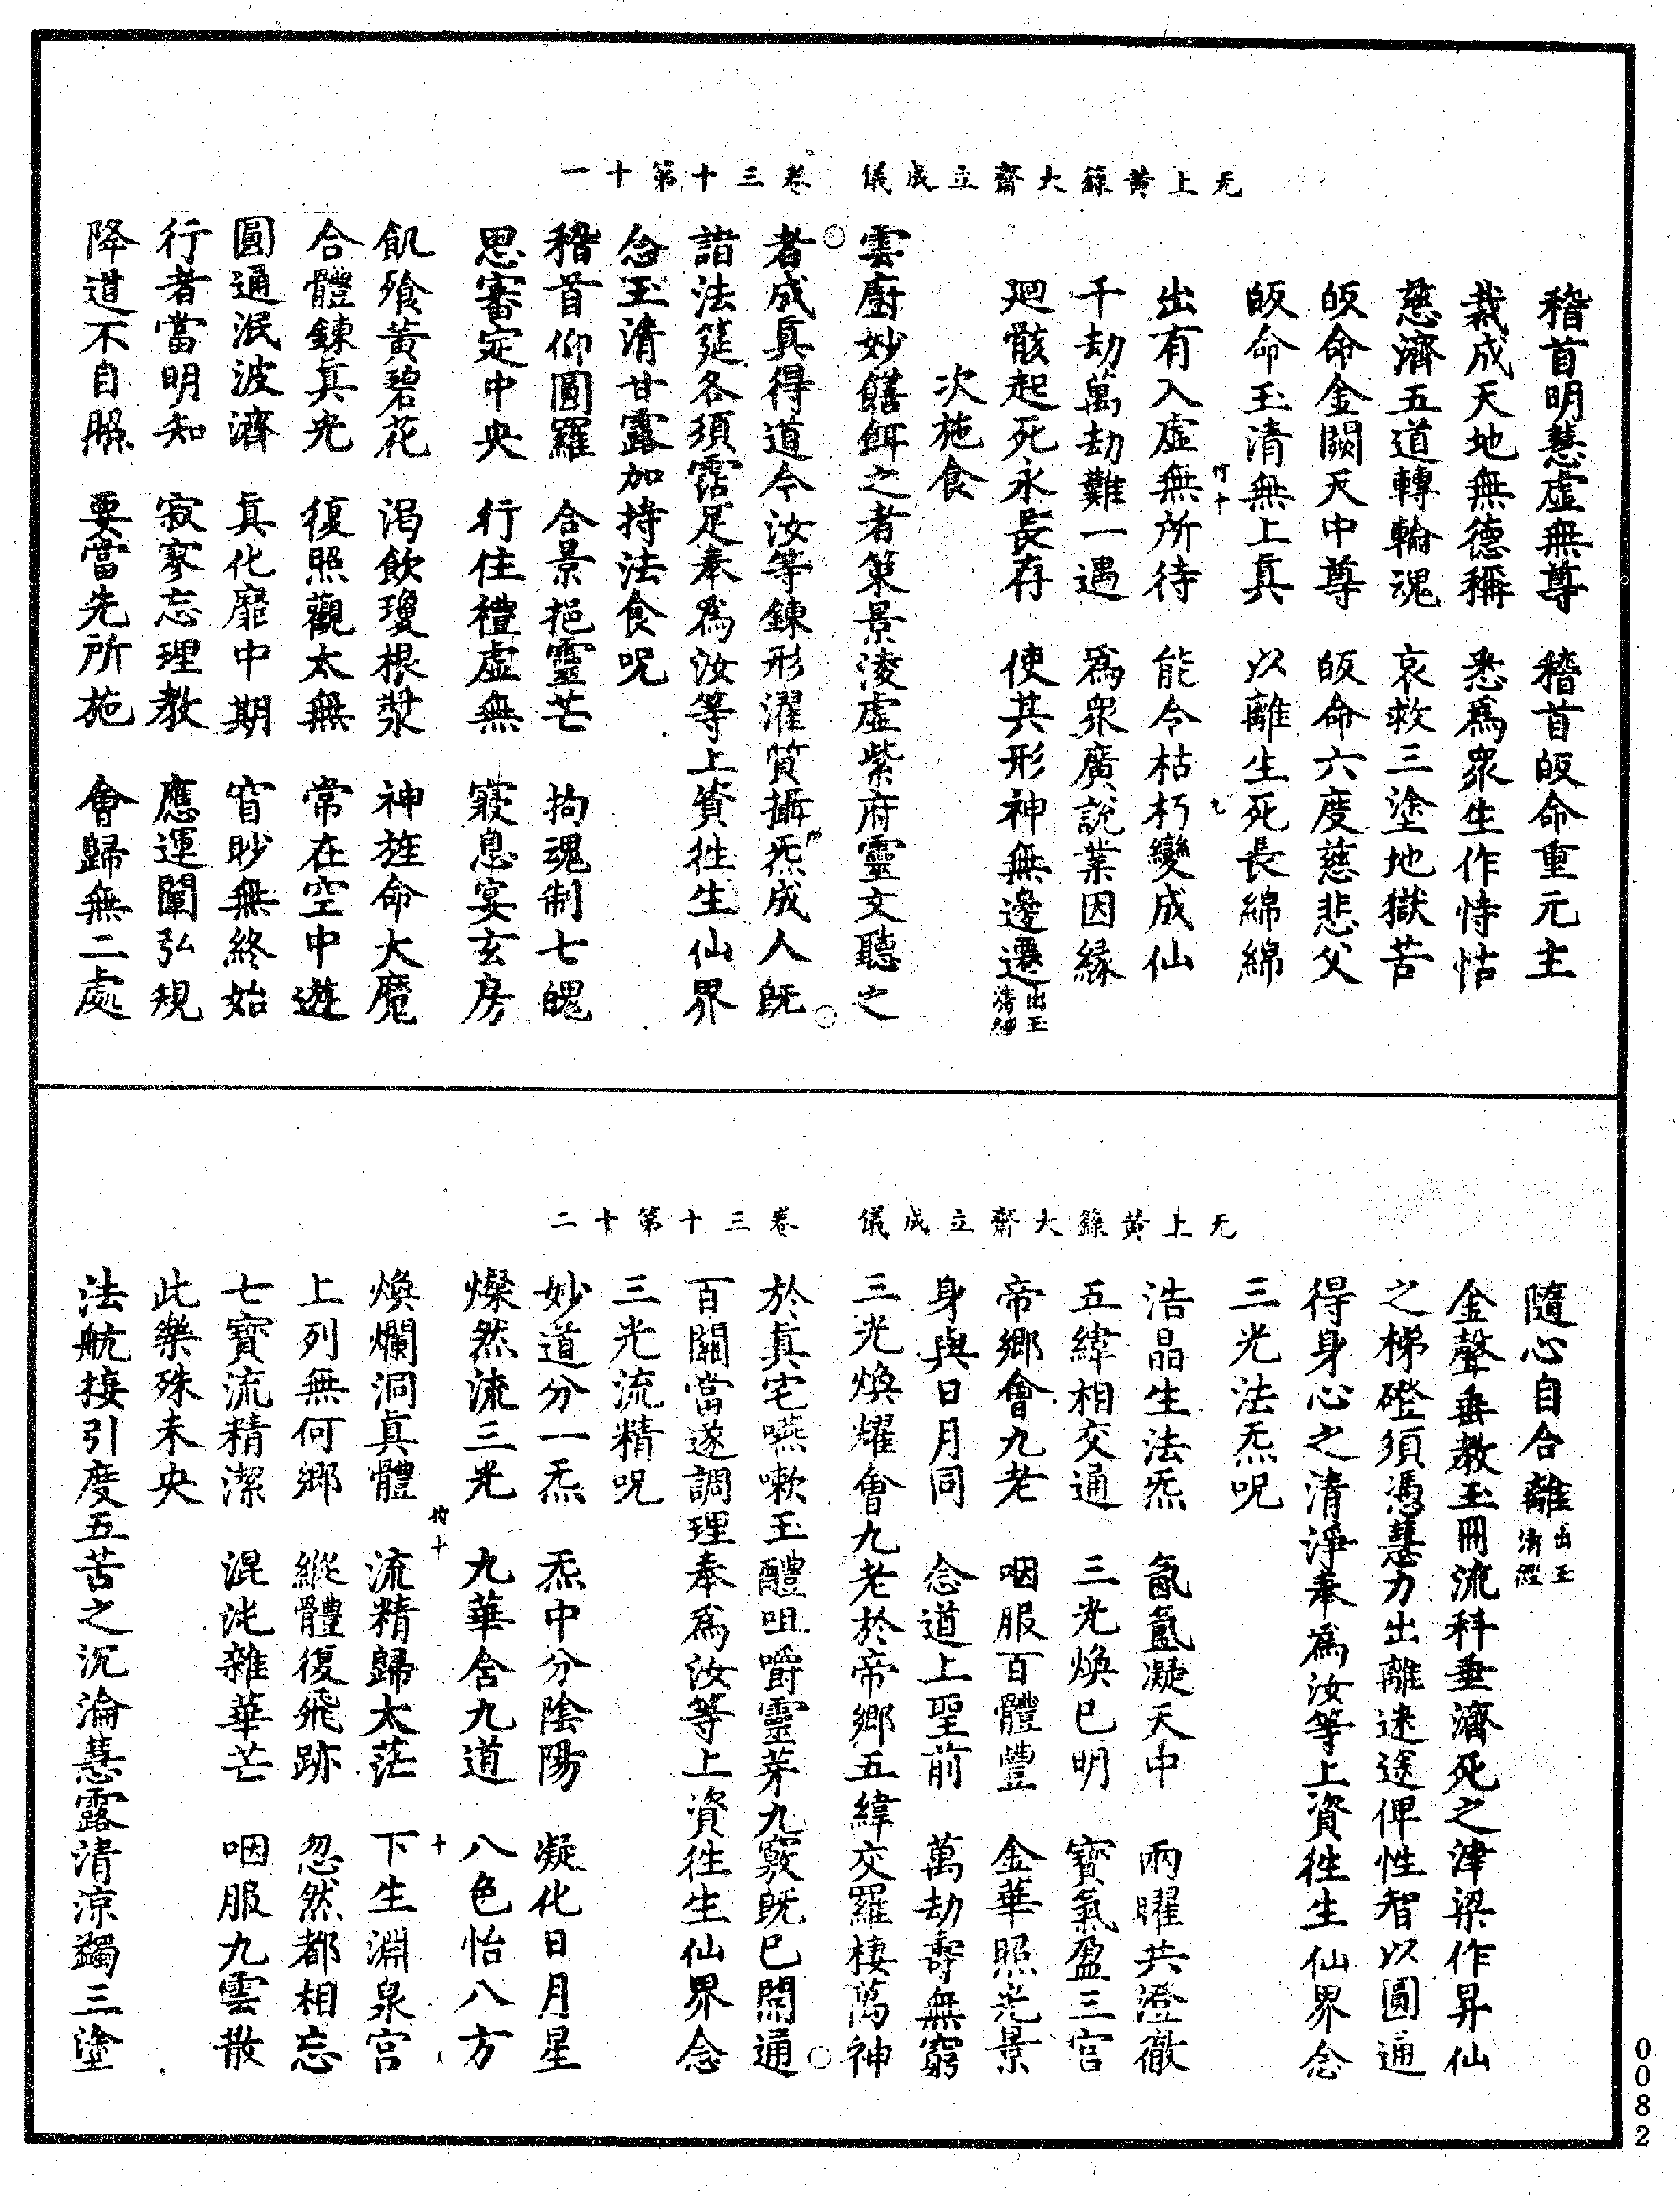 无上黄籙大齋立成儀　卷三十第十一
稽首明慧虛無尊　稽首皈命重元主
裁成天地無德稱　悉爲衆生作恃怙
慈濟五道轉輪魂　哀救三塗地獄苦
皈命金闕天中尊　皈命六度慈悲父
皈命玉清無上真　以離生死長綿綿
出有入虛無所待　能令枯朽變成仙
千劫萬劫難一遇　爲衆廣說業因緣
廻骸起死永長存　使其形神無邊遷出玉清經
次施食
雲厨妙饍餌之者策景淩虛紫府靈文聽之
者成真得道今汝等鍊形濯質攝炁成人旣
詣法筵各須霑足奉爲汝等上資徃生仙界
念玉清甘露加持法食呪
稽首仰圓羅　合景挹靈芒　拘魂制七魄
思審定中央　行住禮虛無　寢息宴玄房
飢飡黄碧花　渴飲瓊根漿　神旌命大魔
合體鍊真光　復照觀太無　常在空中遊
圓通泯波濟　真化靡中期　窅眇無終始
行者當明知　寂寥忘理教　應運闡弘規
降道不自照　要當先所施　會歸無二處
无上黄籙大齋立成儀　卷三十第十二
隨心自合離出玉清經
金聲垂教玉冊流科垂濟死之津梁作昇仙
之梯磴須馮慧力出離迷途俾性智以圓通
得身心之清淨奉爲汝等上資徃生仙界念
三光法炁呪
浩晶生法炁　氤氳凝天中　兩曜共澄徹
五緯相交通　三光煥已明　寶氣盈三宫
帝鄉會九老　咽服百體豐　金華照光景
身與日月同　念道上聖前　萬劫壽無窮
三光煥耀會九老於帝鄉五緯交羅棲萬神
於真宅嚥嗽玉醴咀嚼靈芽九竅旣已開通
百關當遂調理奉爲汝等上資徃生仙界念
三光流精呪
妙道分一炁　炁中分陰陽　凝化日月星
燦然流三光　九華含九道　八色怡八方
煥爛洞真體　流精歸太茫　下生淵泉宫
上列無何鄉　縱體復飛跡　忽然都相忘
七寶流精潔　混沌雜華芒　咽服九雲散
此樂殊未央
法航接引度五苦之沉淪慧露清涼蠲三塗
0082